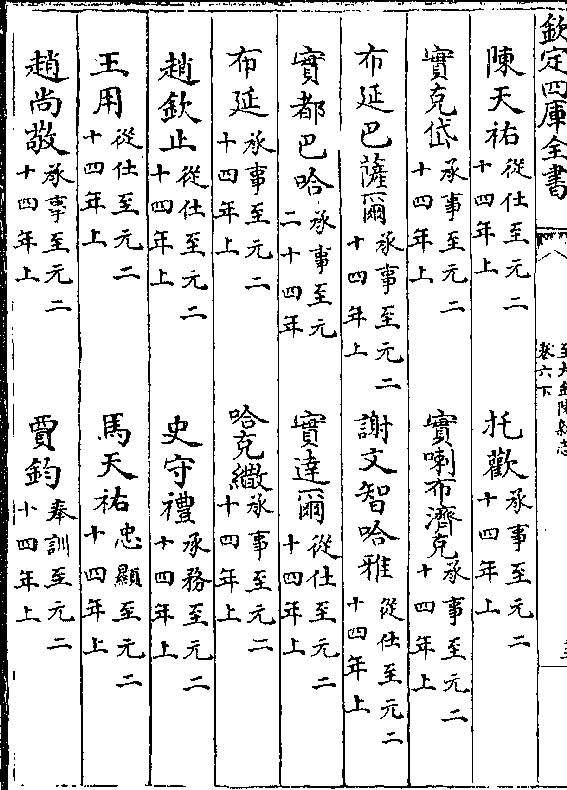 欽定四庫全書
至大金陵新志
卷六下
陳天祐 從仕至元二十四年上 托歡 承事至元二十四年上
實克岱 承事至元二十四年上 實喇布濟克 承事至元二十四年上
布延巴薩爾 承事至元二十四年上 謝文智哈雅 從仕至元二十四年上
實都巴哈 承事至元二十四年 實達爾 從仕至元二十四年上
布延 承事至元二十四年上 哈克繖 承事至元二十四年上
趙欽止 從仕至元二十四年上 史守禮 承務至元二十四年上
王用 從仕至元二十四年上 馬天祐 忠顯至元二十四年上
趙尚敬 承事至元二十四年上 賈鈞 奉訓至元二十四年上